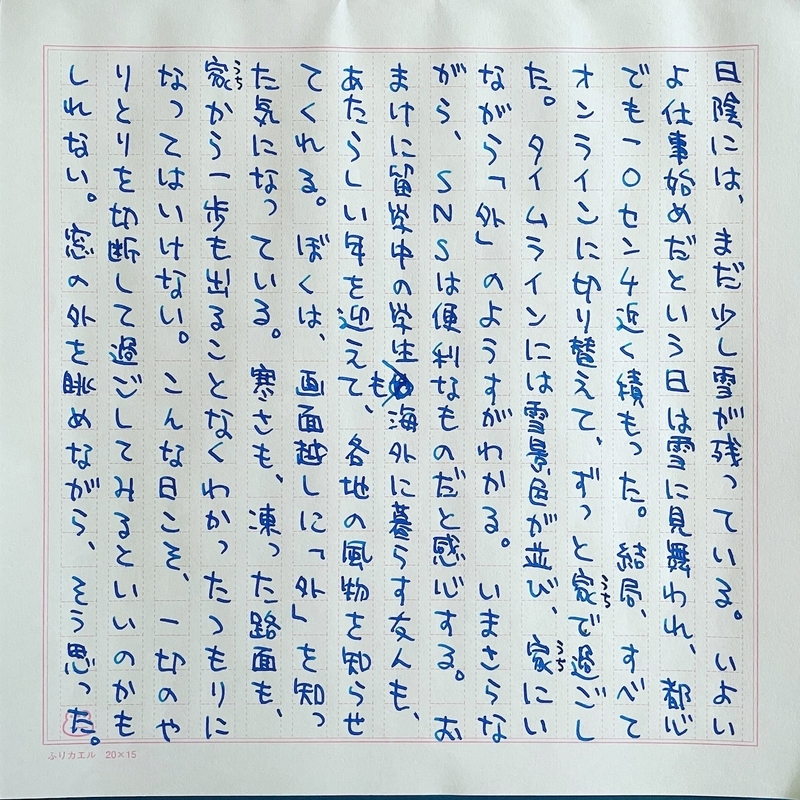 日陰には、まだ少し雪が残っている。いよい
よ仕事始めだという日は雪に見舞われ、都心
でも一〇センチ近く積もった。結局、すべて
オンラインに切り替えて、ずっと家うちで過ごし
た。タイムラインには雪景色が並び、家うちにい
ながら「外」のようすがわかる。いまさらな
がら、SNSは便利なものだと感心する。お
まけに留学中の学生も海外に暮らす友人も、
あたらしい年を迎えて、各地の風物を知らせ
てくれる。ぼくは、画面越しに「外」を知っ
た気になっている。寒さも、凍った路面も、
家うちから一歩も出ることなくわかったつもりに
なってはいけない。こんな日こそ、一切のや
りとりを切断して過ごしてみるといいのかも
しれない。窓の外を眺めながら、そう思った。
ふりカエル 20×15